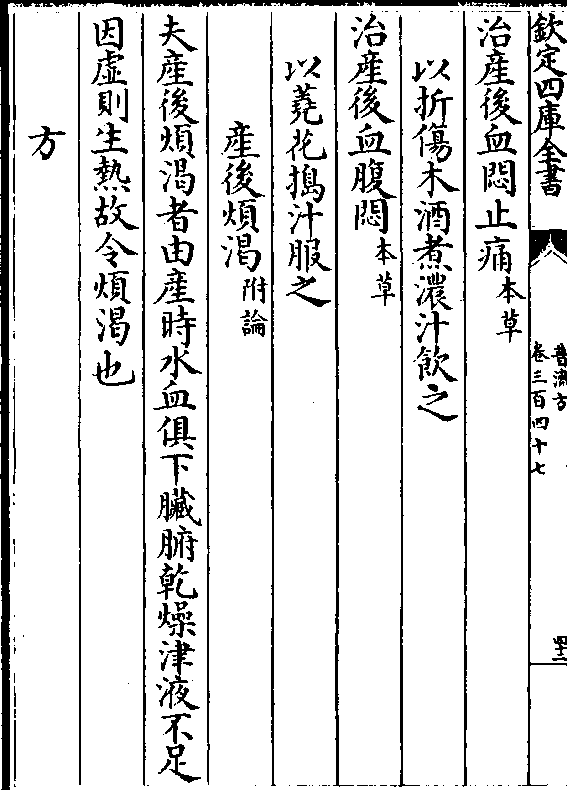 欽定四庫全書
普濟方
卷三百四十七
四十二
治産後血悶止痛本草
以折傷木酒煮濃汁飲之
治産後血腹悶本草
以蕘花搗汁服之
産後煩渴附論
夫産後煩渴者由産時水血俱下臟腑乾燥津液不足
因虛則生熱故令煩渴也
方